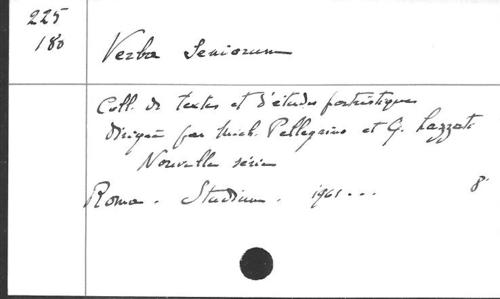 225
180
Verba Seniorum
Coll. de textes et d'études patristiques
dirigée par Mich. Pellegrino et G. Lazzati
Nouvelle série
Roma. Studium. 1961... 8°